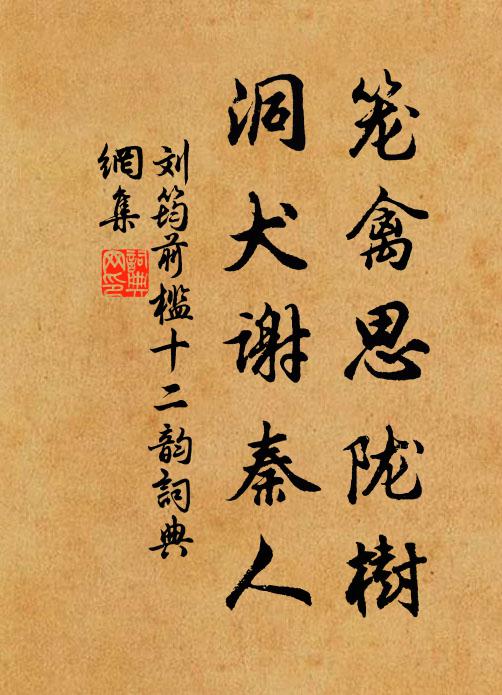 笼禽思陇樹
洞犬谢秦人
刘筠前槛十二韵詞典
網集
詞典网印